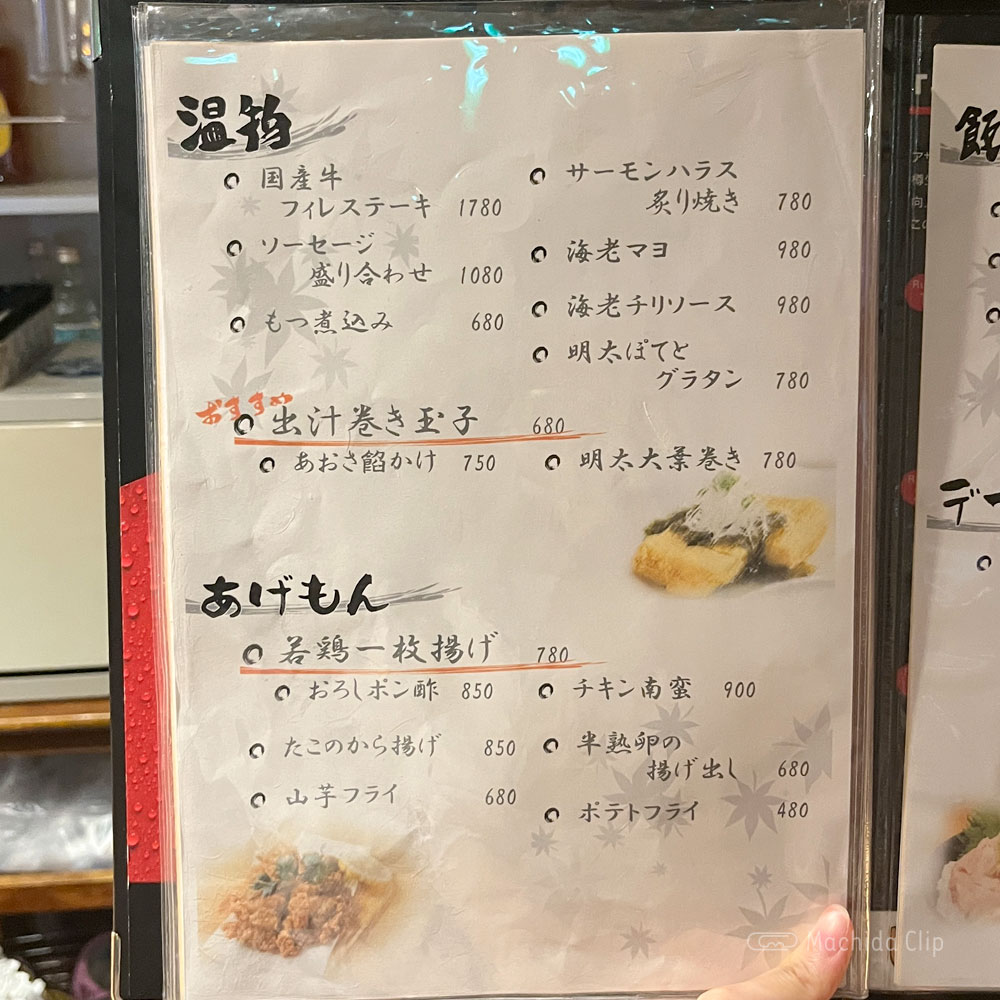 温物
国産牛
フィレステーキ 1780
ソーセージ
盛り合わせ 1080
もつ煮込み 680
サーモンハラス
炙り焼き 780
海老マヨ 980
海老チリソース 980
明太ぽてと
グラタン 780
おすすめ
出汁巻き玉子 680
あおさ餡かけ 750
明太大葉巻き 780
あげもん
若鶏一枚揚げ 780
おろしポン酢 850
チキン南蛮 900
たこのから揚げ 850
山芋フライ 680
半熟卵の
揚げ出し 680
ポテトフライ 480
飯
デー
Machida Clip